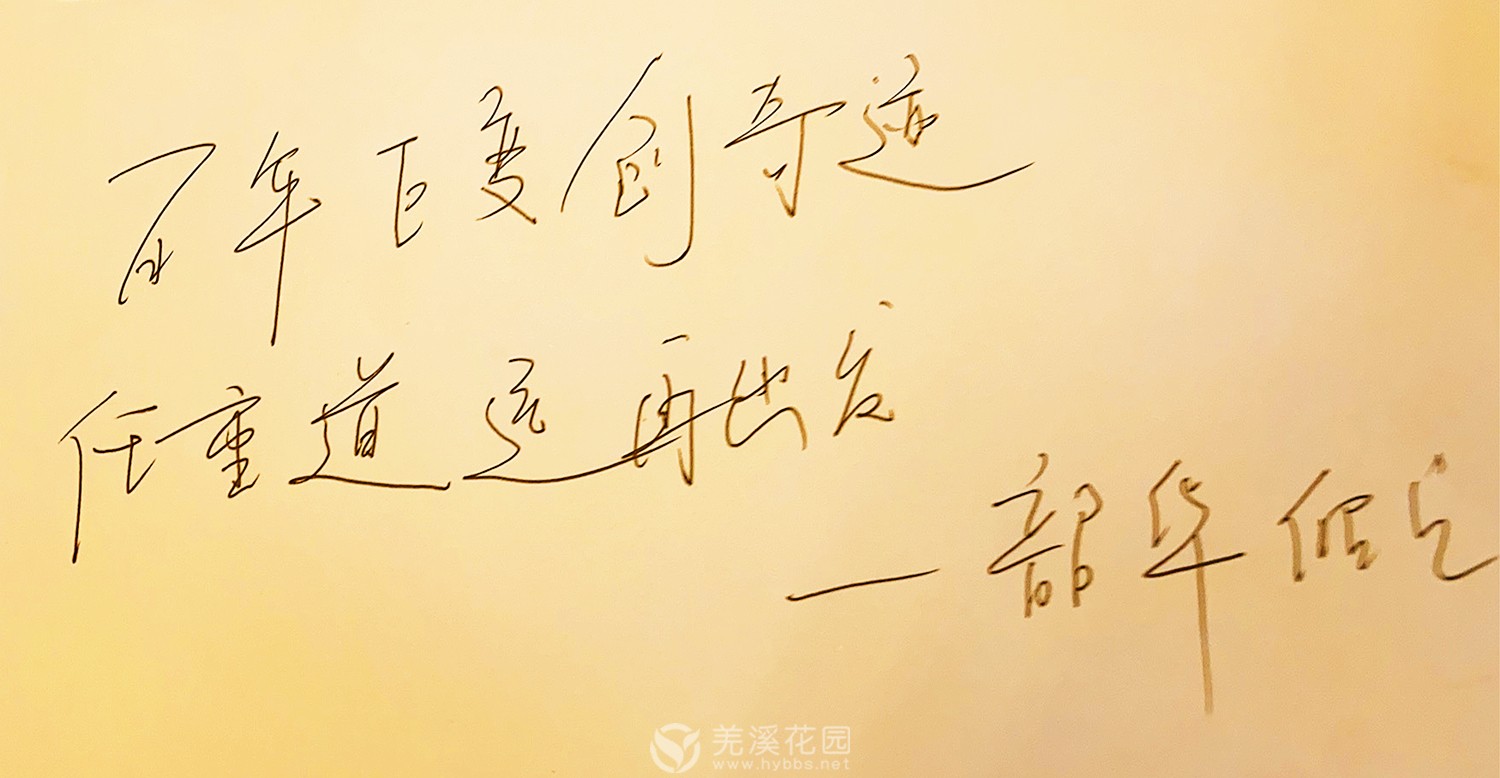 百年巨变创奇迹
任重道远再出发
一韶华倥
羌溪花园
www.hybbs.net